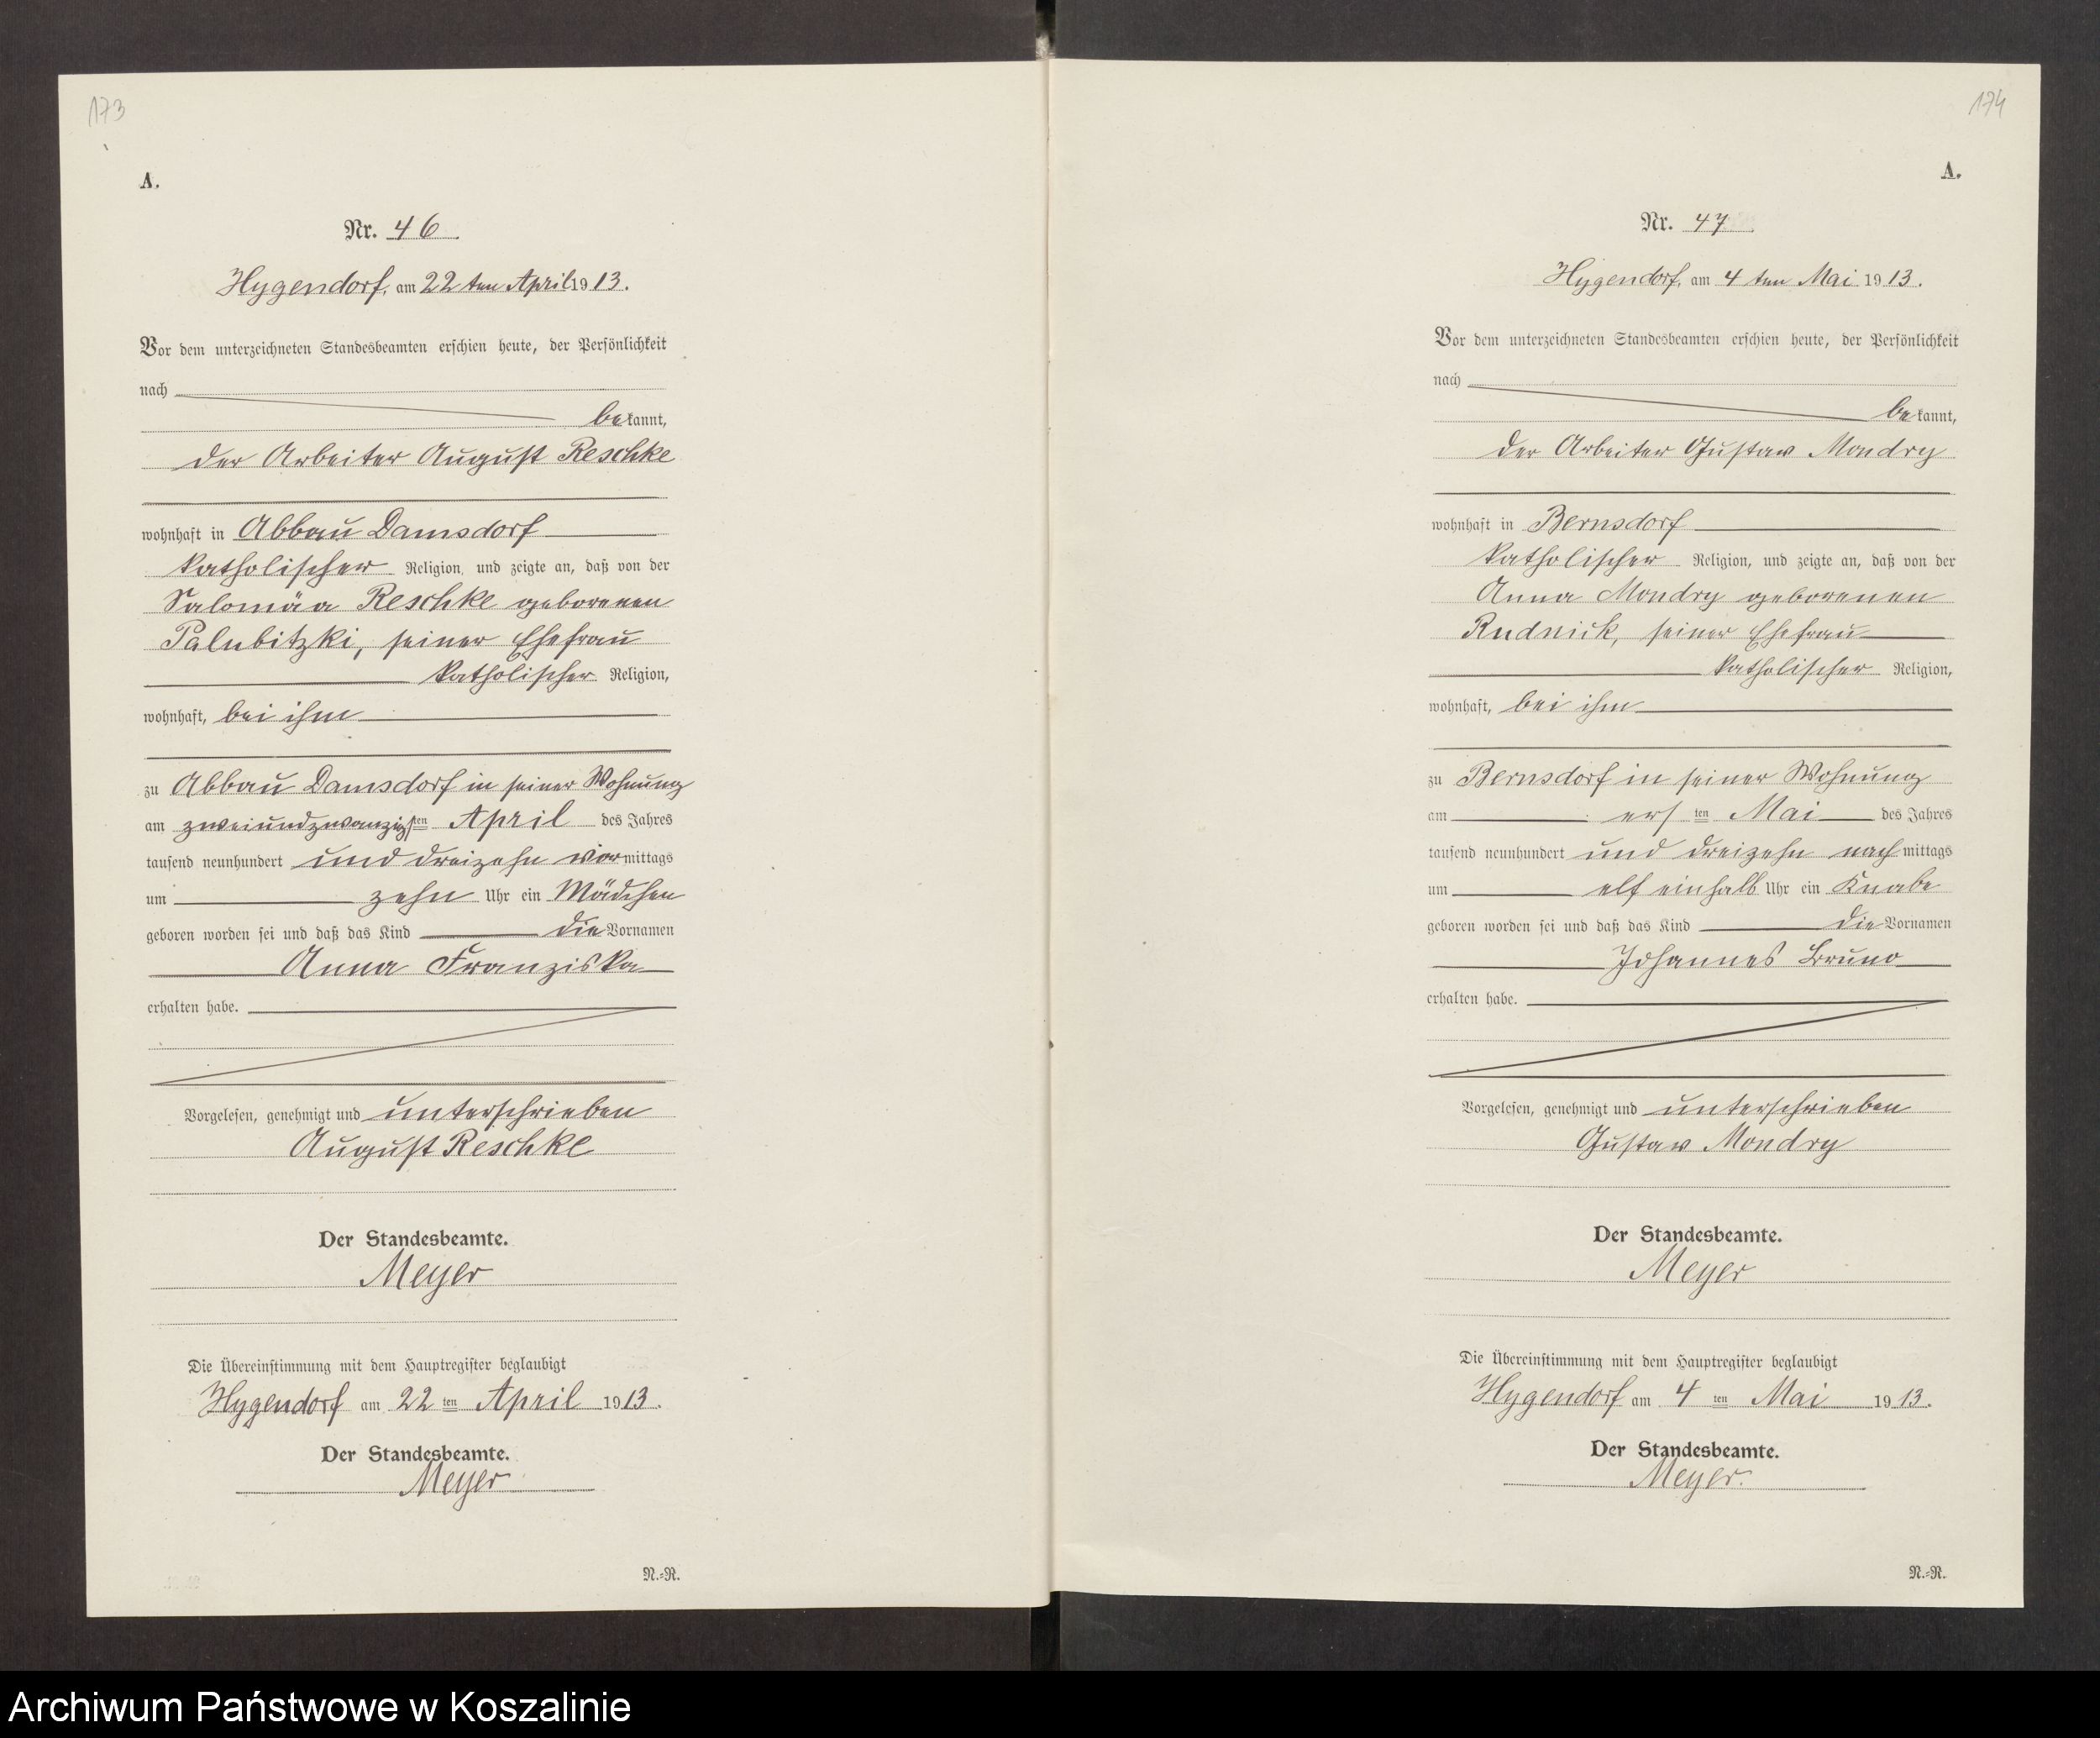 173
A.
Nr. 46.
Hygendorf, am 22 ten April 1913.
Vor dem unterzeichneten Standesbeamten erschien heute, der Persönlichkeit
nach
bekannt,
der Arbeiter August Reschke
wohnhaft in Abbau Damsdorf
katholischer Religion, und zeigte an, daß von der
Salomäa Reschke geborenen
Palubitzki, seiner Ehefrau
katholischer Religion,
wohnhaft, bei ihm
zu Abbau Damsdorf in seiner Wohnung
am zweiundzwanzigsten April des Jahres
tausend neunhundert und dreizehn vormittags
um zehn Uhr ein Mädchen
geboren worden sei und daß das Kind die Vornamen
Anna Franziska
erhalten habe.
Vorgelesen, genehmigt und unterschrieben
August Reschke
Der Standesbeamte.
Meyer
Die Übereinstimmung mit dem Hauptregister beglaubigt
Hygendorf am 22 ten April 1913.
Der Standesbeamte.
Meyer
N.=R.
174
A.
Nr. 47.
Hygendorf, am 4 ten Mai 1913.
Vor dem unterzeichneten Standesbeamten erschien heute, der Persönlichkeit
nach
bekannt,
der Arbeiter Gustav Mondry
wohnhaft in Bernsdorf
katholischer Religion, und zeigte an, daß von der
Anna Mondry geborenen
Rudnick, seiner Ehefrau
katholischer Religion,
wohnhaft, bei ihm
zu Bernsdorf in seiner Wohnung
am ersten Mai des Jahres
tausend neunhundert und dreizehn nachmittags
um elf einhalb Uhr ein Knabe
geboren worden sei und daß das Kind die Vornamen
Johannes Bruno
erhalten habe.
Vorgelesen, genehmigt und unterschrieben
Gustav Mondry
Der Standesbeamte.
Meyer
Die Übereinstimmung mit dem Hauptregister beglaubigt
Hygendorf am 4 ten Mai 1913.
Der Standesbeamte.
Meyer.
N.=R.
Archiwum Państwowe w Koszalinie